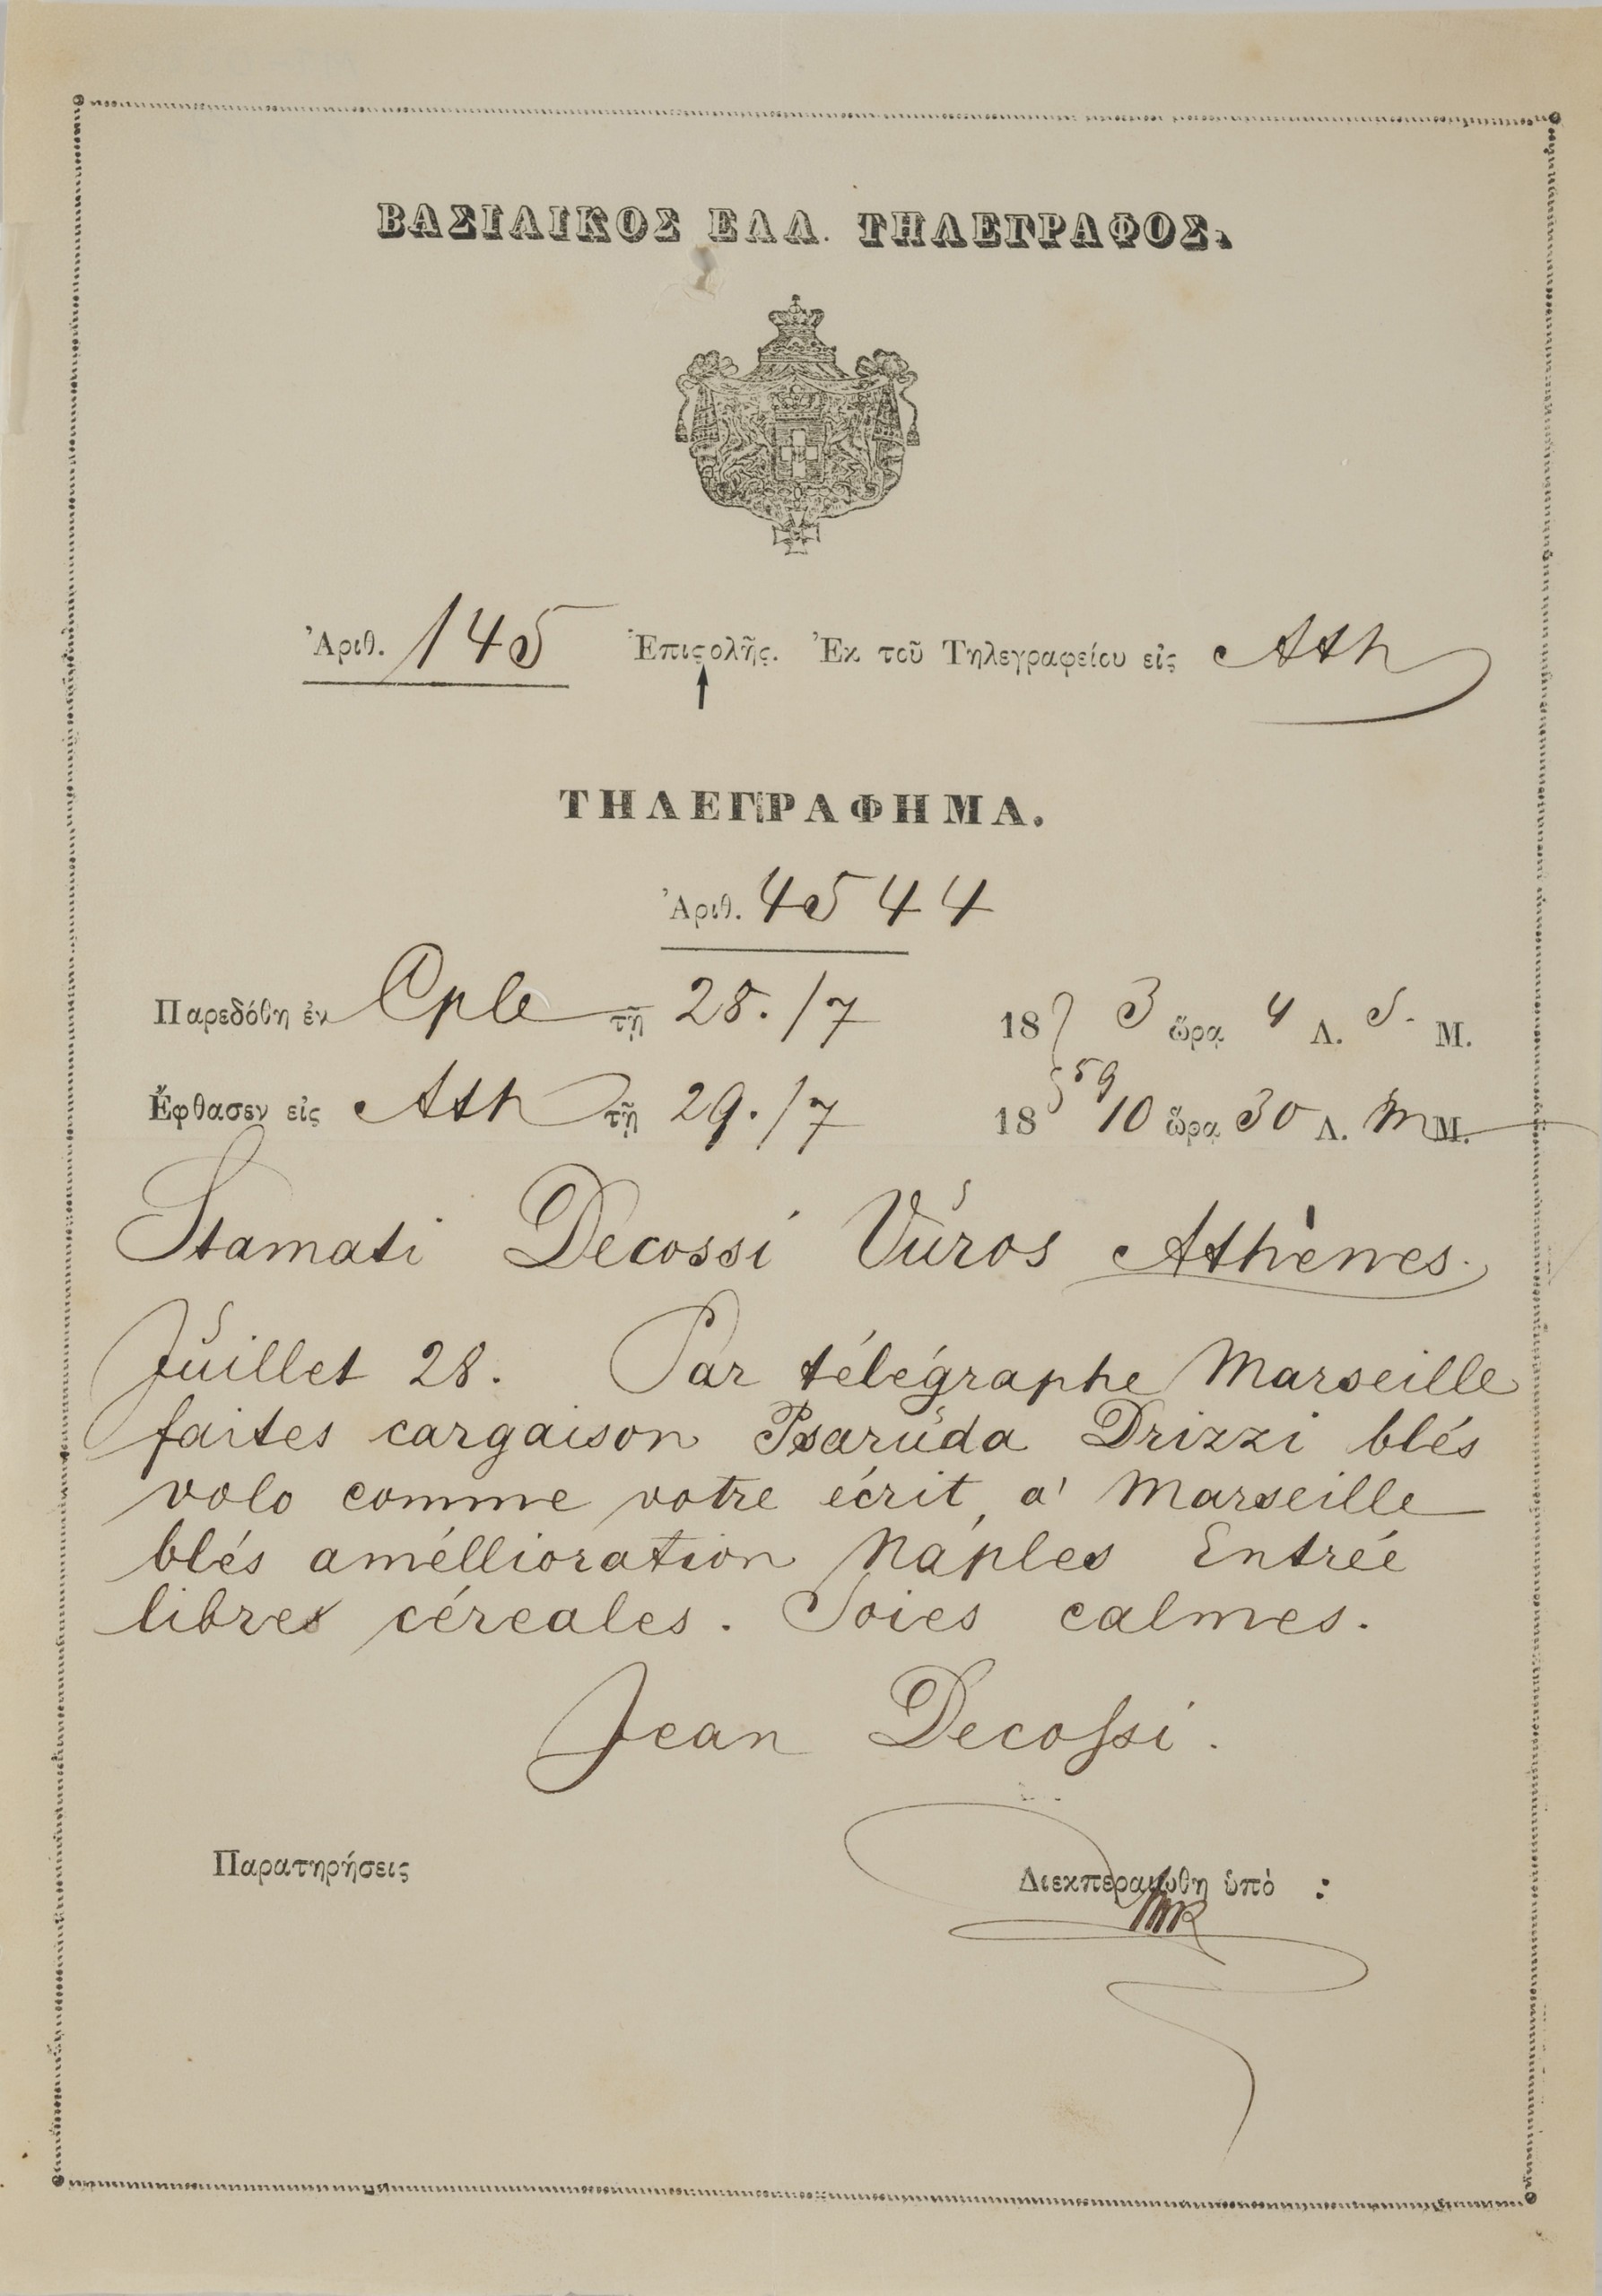 ΒΑΣΙΛΙΚΟΣ ΕΛΛ. ΤΗΛΕΓΡΑΦΟΣ.
Ἀριθ. 145 Ἐπιϛολῆς. Ἐκ τοῦ Τηλεγραφείου εἰς Ath
ΤΗΛΕΓΡΑΦΗΜΑ.
Ἀριθ. 4544
Παρεδόθη ἐν Cple τῇ 28./7 18 3 ὥρᾳ 4 Λ. S. Μ.
Ἔφθασεν εἰς Ath τῇ 29./7 18 59 10 ὥρᾳ 30 Λ. m Μ.
Stamati Decossi Vúros Athènes.
Juillet 28. Par télégraphe Marseille
faites cargaison Psarúda Drizzi blés
volo comme votre écrit, a' Marseille
blés améllioration Náples Entrée
libres céreales. Soies calmes.
Jean Decossi.
Παρατηρήσεις Διεκπεραιώθη ὑπὸ :